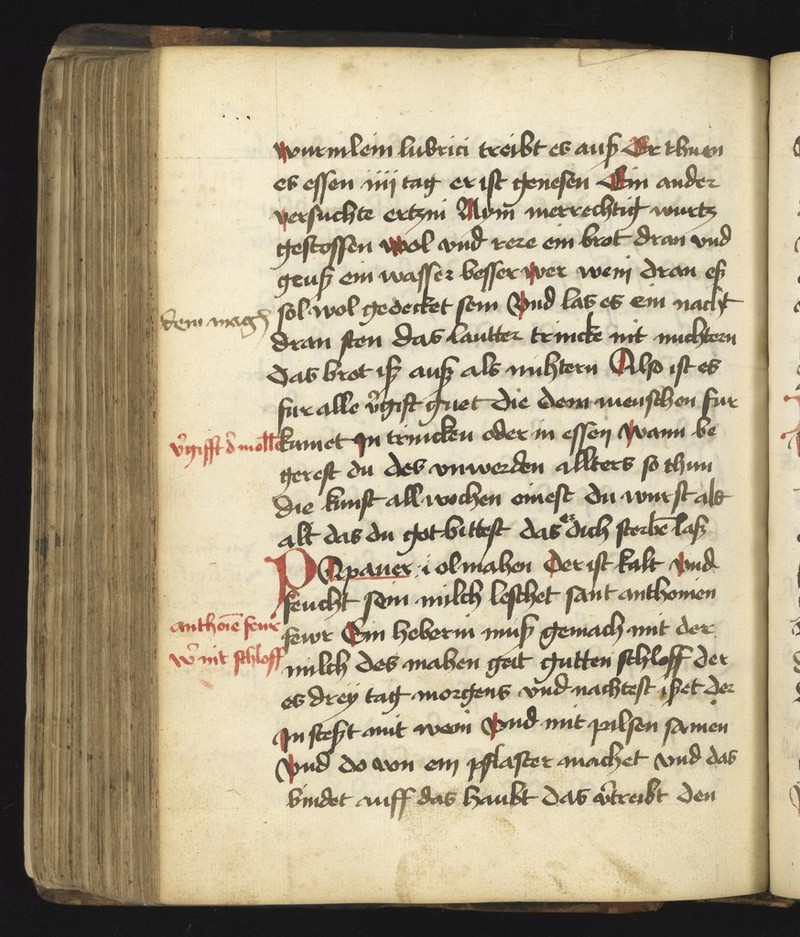 wurmlein lubrici treibt es auß Er thuen
es essen iiij tag er ist genesen Ein ander
versuchte ertzni Nym merrechtig wurtz
gestossen wol vnd rere ein brot dran vnd
geuß ein wasser besser wer wein dran eß
sol wol gedecket sein Vnd las es ein nacht
dran sten das lautter trincke nit nuchtern
das brot iß auß als nuhtern Also ist es
fur alle v̄gift guet die dem menschen fur
kumet In trincken oder in essen Wann be
gerest du des vnwerden allters so thun
die kunst all wochen einest du wurst als
alt das du got bittest das er dich sterbē laß
PApauer i olmahen Der ist kalt Vnd
feucht Sein milch leschet sant anthonien
fewr Ein heberin muß gemach mit der
milch des mahen geit gutten schloff der
es drey tag morgens vnd nachtest ißet der
In steßt mit wein Vnd mit pilsen samen
Vnd do von ein pflaster machet vnd das
bindet auff das haubt das v̄treibt den
v̄gifft
anthoīe feur
nit schloff